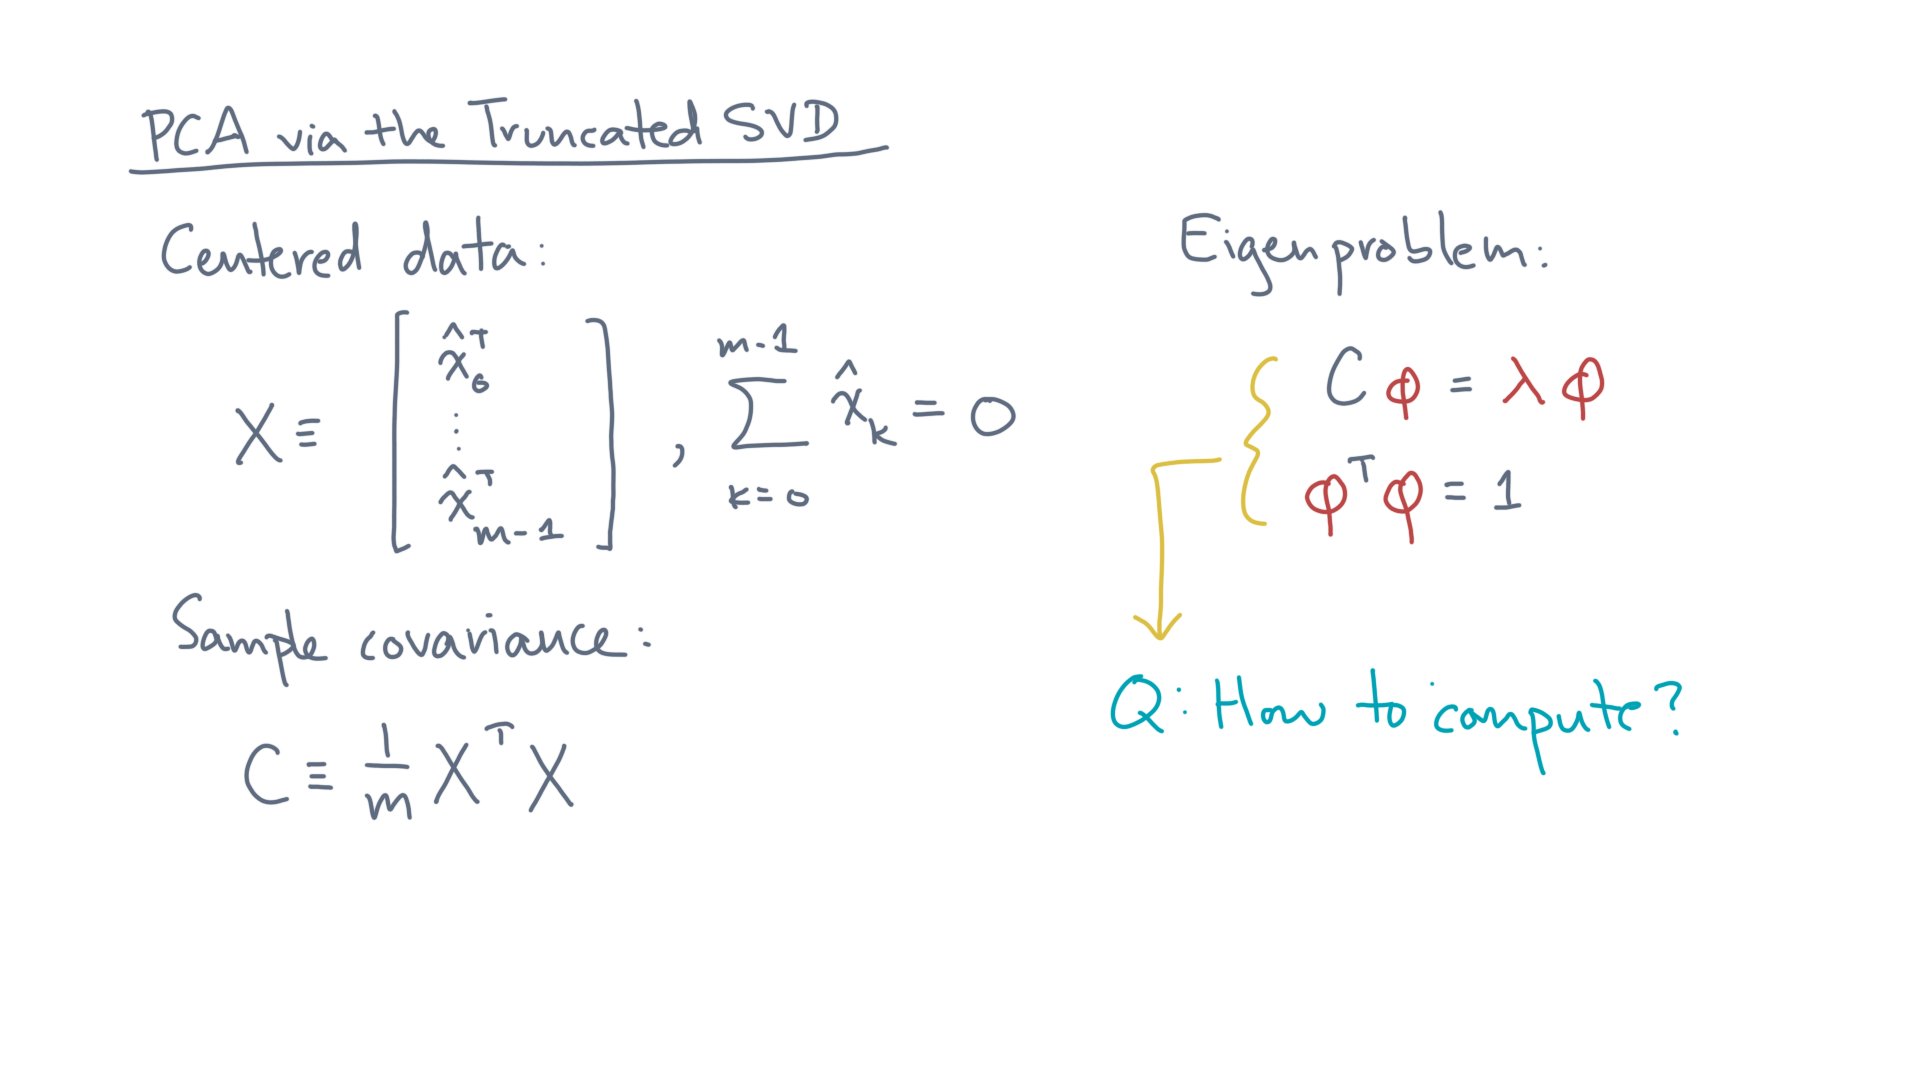 PCA via the Truncated SVD
Centered data:
X ≡ [ x̂₀ᵀ ⋮ x̂ₘ₋₁ᵀ ] , ∑_{k=0}^{m-1} x̂ₖ = 0
Sample covariance:
C ≡ 1/m Xᵀ X
Eigenproblem:
C φ = λ φ
φᵀ φ = 1
Q: How to compute?